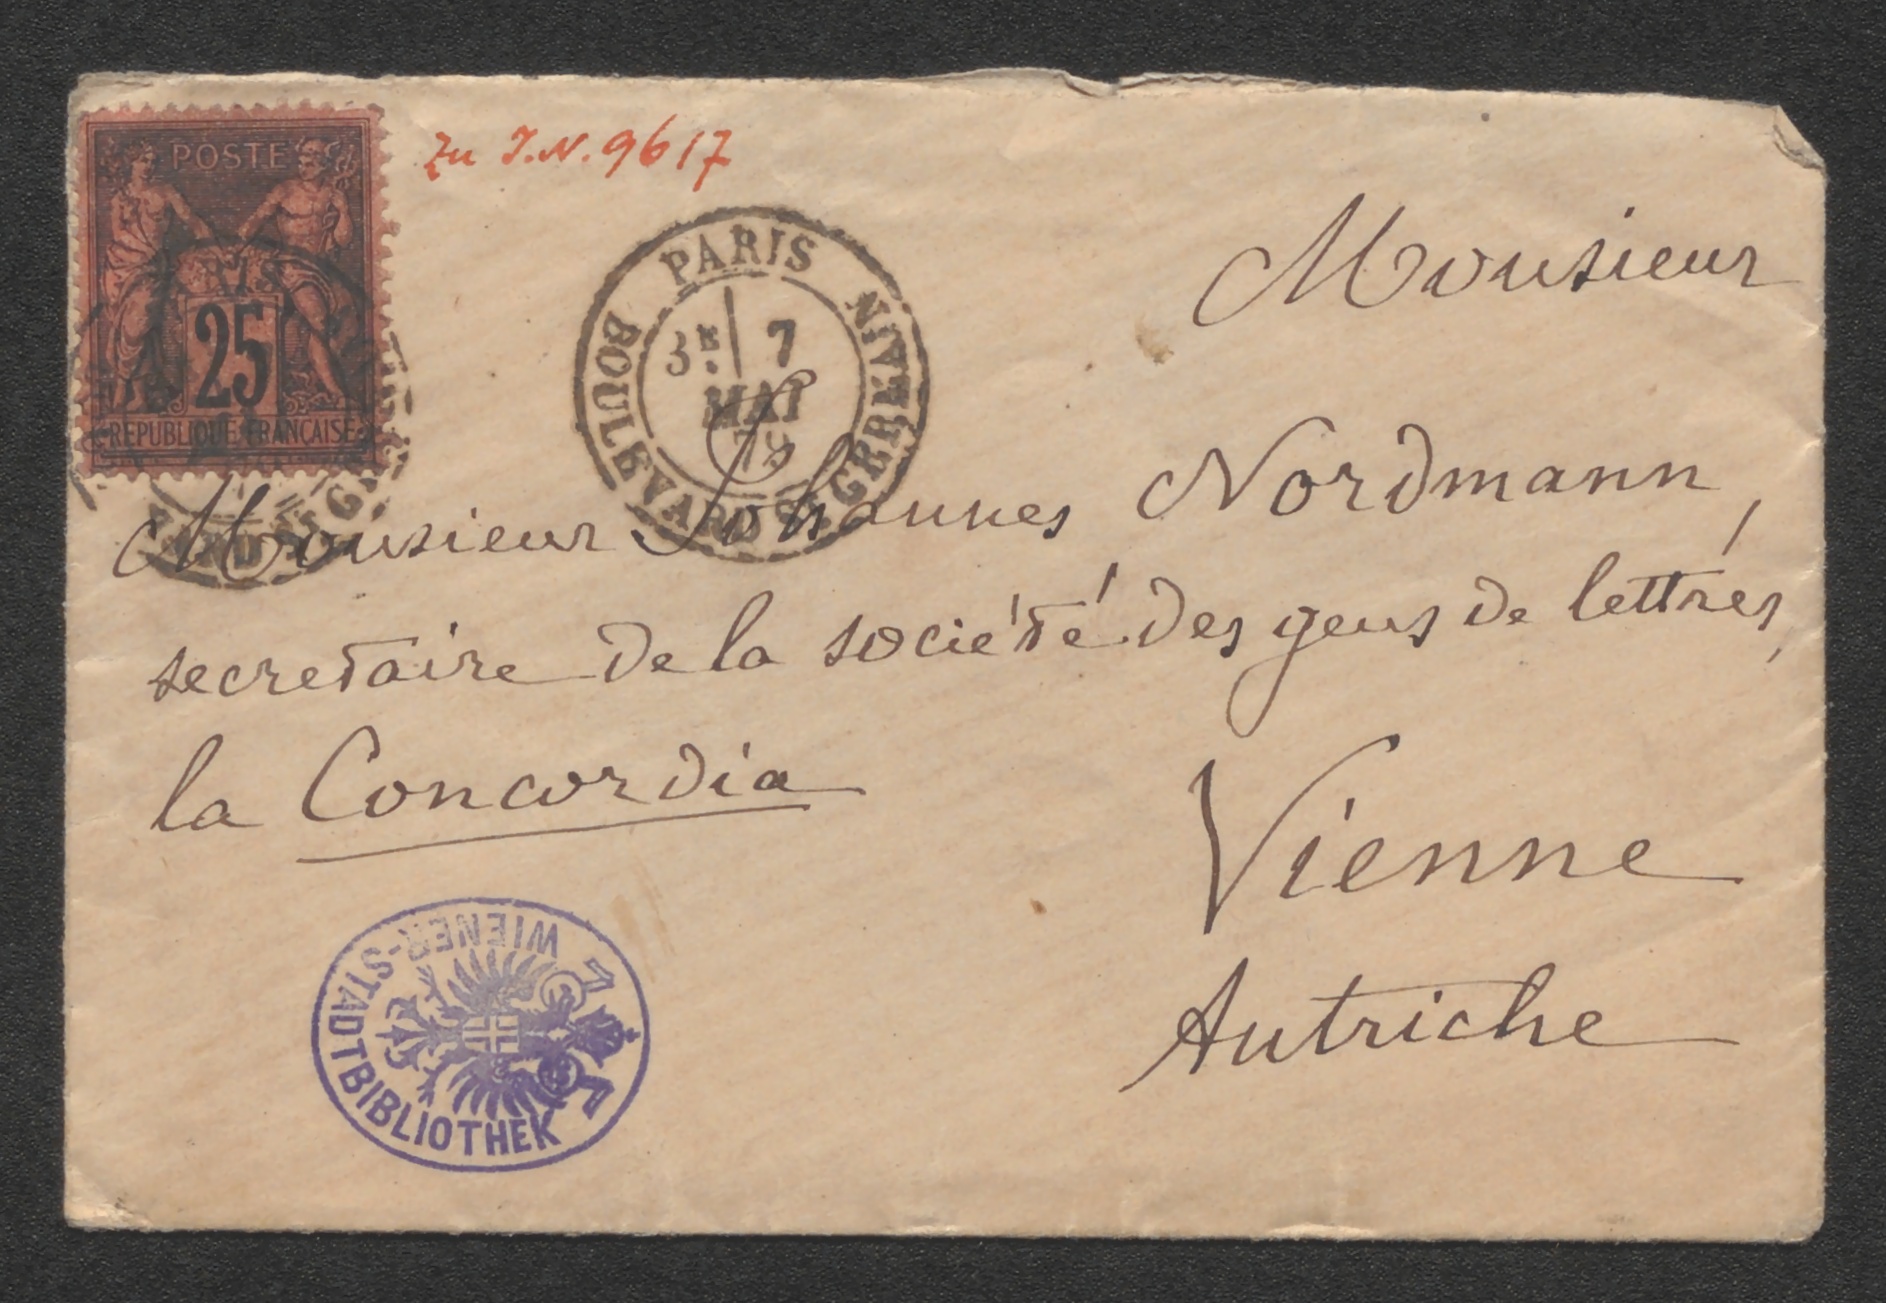 POSTE
25
REPUBLIQUE FRANCAISE
Zu I.N. 9617
PARIS
3E 7
MAI
79
BOULEVARD St GERMAIN
Monsieur
Monsieur Johannes Nordmann,
secretaire de la société des gens de lettres,
la Concordia
Vienne
Autriche
WIENER-STADTBIBLIOTHEK